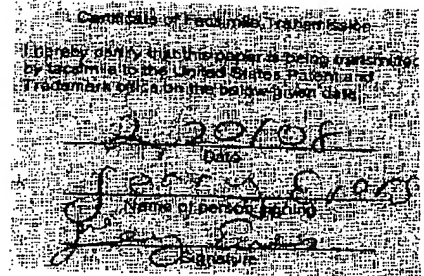 Certificate of Facsimile Transmission
I hereby certify that this paper is being transmitted
by facsimile to the United States Patent and
Trademark Office on the below given date
2/20/08
Date
Name of person signing
Signature